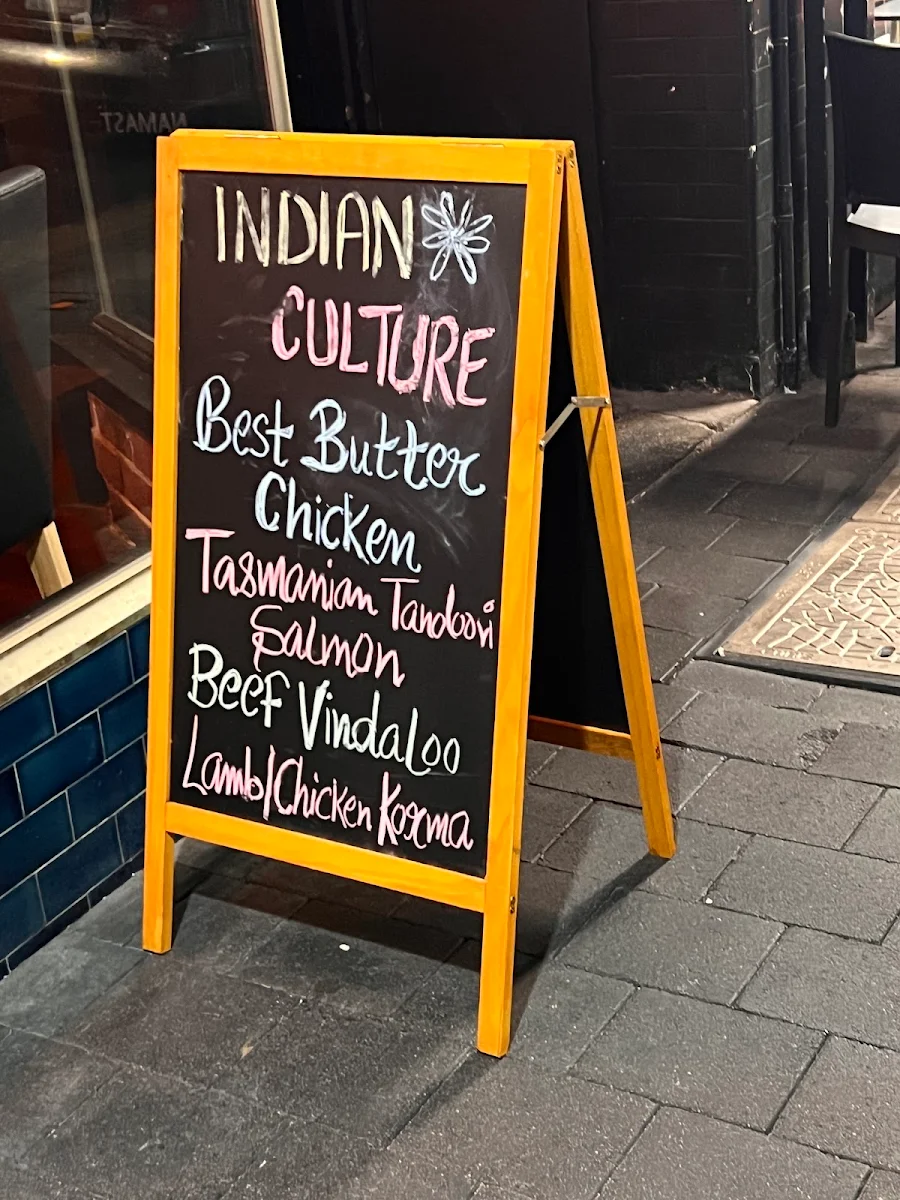 NAMAST
INDIAN
CULTURE
Best Butter
Chicken
Tasmanian Tandoori
Salmon
Beef Vindaloo
Lamb/Chicken Korma